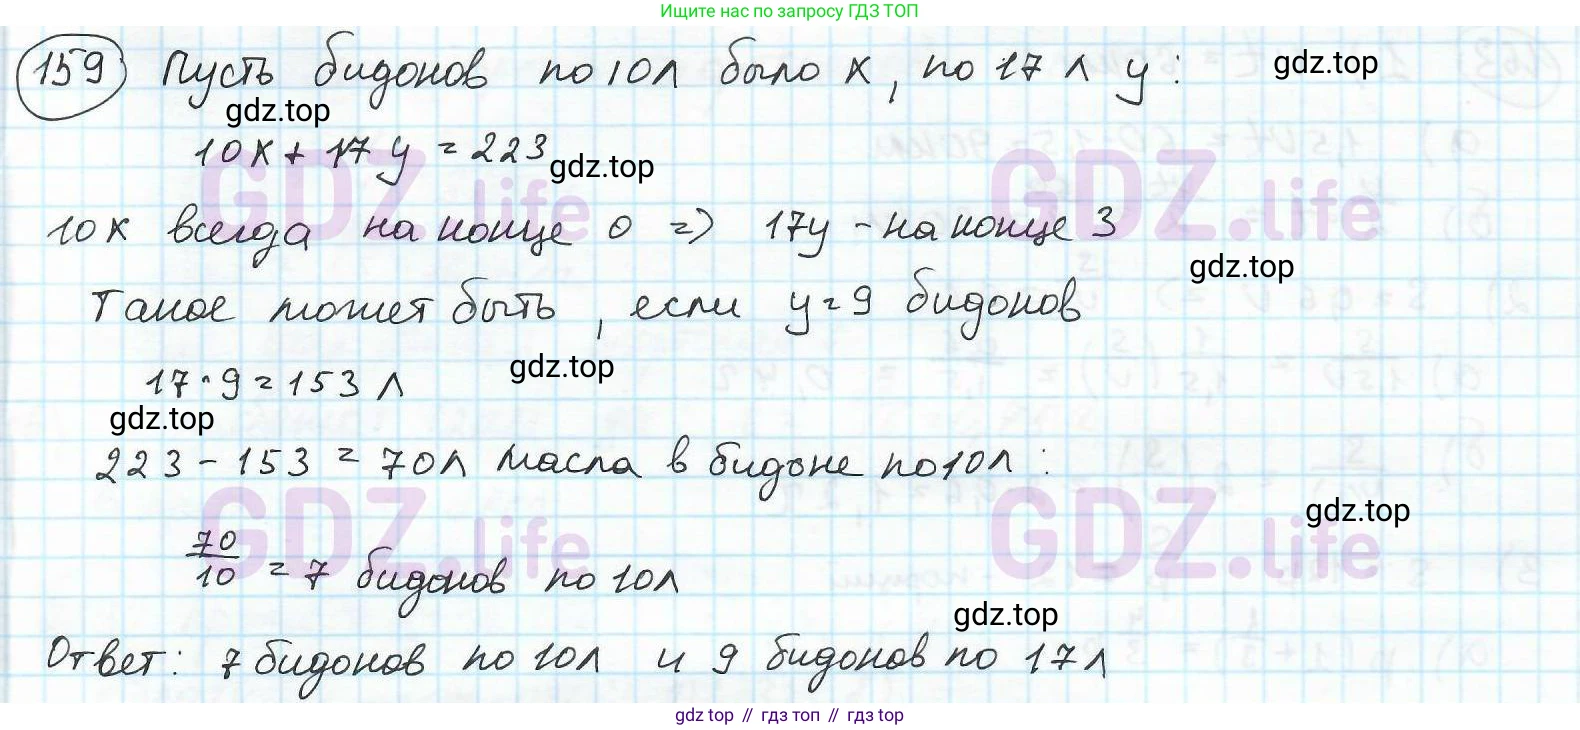 Ищите нас по запросу ГДЗ ТОП
159 Пусть бидонов по 10 л было x, по 17 л y:
gdz.top
gdz.top
10x + 17y = 223
gdz.top
GDZ.life
GDZ.life
10x всегда на конце 0 => 17y - на конце 3
gdz.top
Такое может быть, если y = 9 бидонов
gdz.top
17 · 9 = 153 л
gdz.top
223 - 153 = 70 л масла в бидоне по 10 л:
GDZ.life
GDZ.life
gdz.top
70/10 = 7 бидонов по 10 л
gdz.top
Ответ: 7 бидонов по 10 л и 9 бидонов по 17 л
gdz top // гдз топ // гдз top